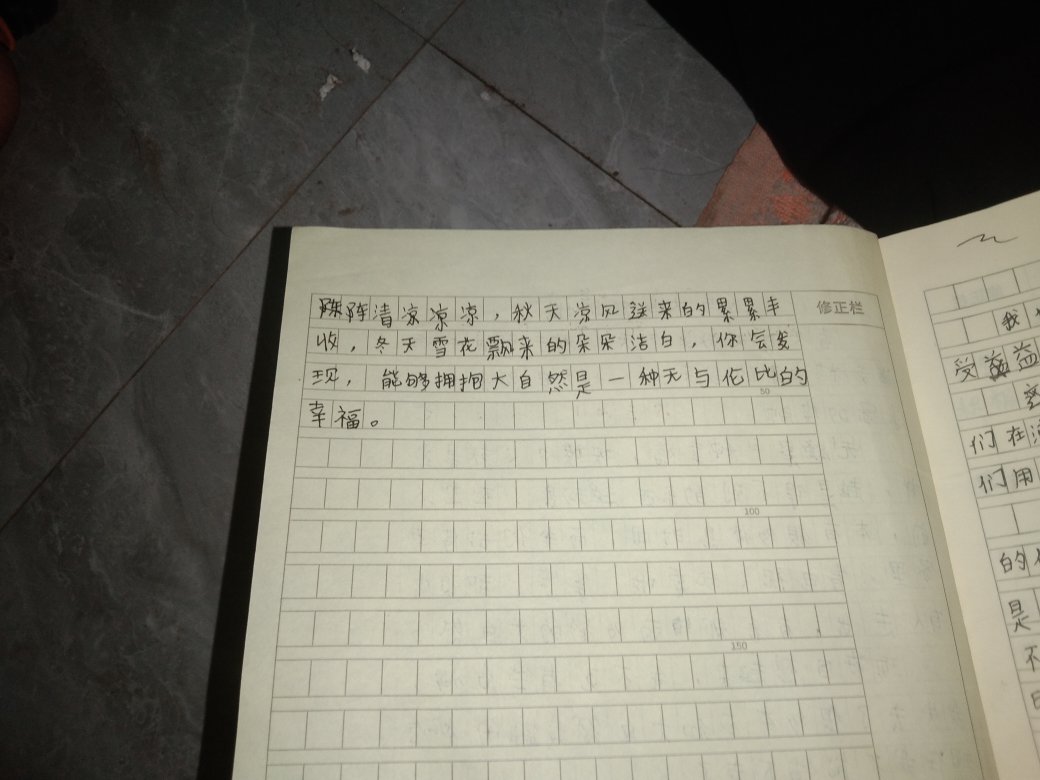 阵阵清凉凉凉，秋天凉风送来的累累丰
收，冬天雪花飘来的朵朵洁白，你会发
现，能够拥抱大自然是一种无与伦比的
幸福。
修正栏
50
100
150
我
受益益
们在
们用
的
是
不